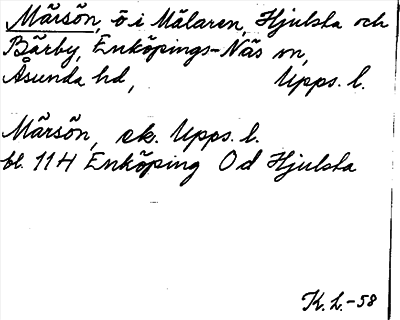 Märsön, ö i Mälaren, Hjulsta och
Bärby, Enköpings-Näs sn,
Åsunda hd, Upps. l.
Märsön, ek. Upps. l.
bl. 114 Enköping Od Hjulsta
K. L.-58